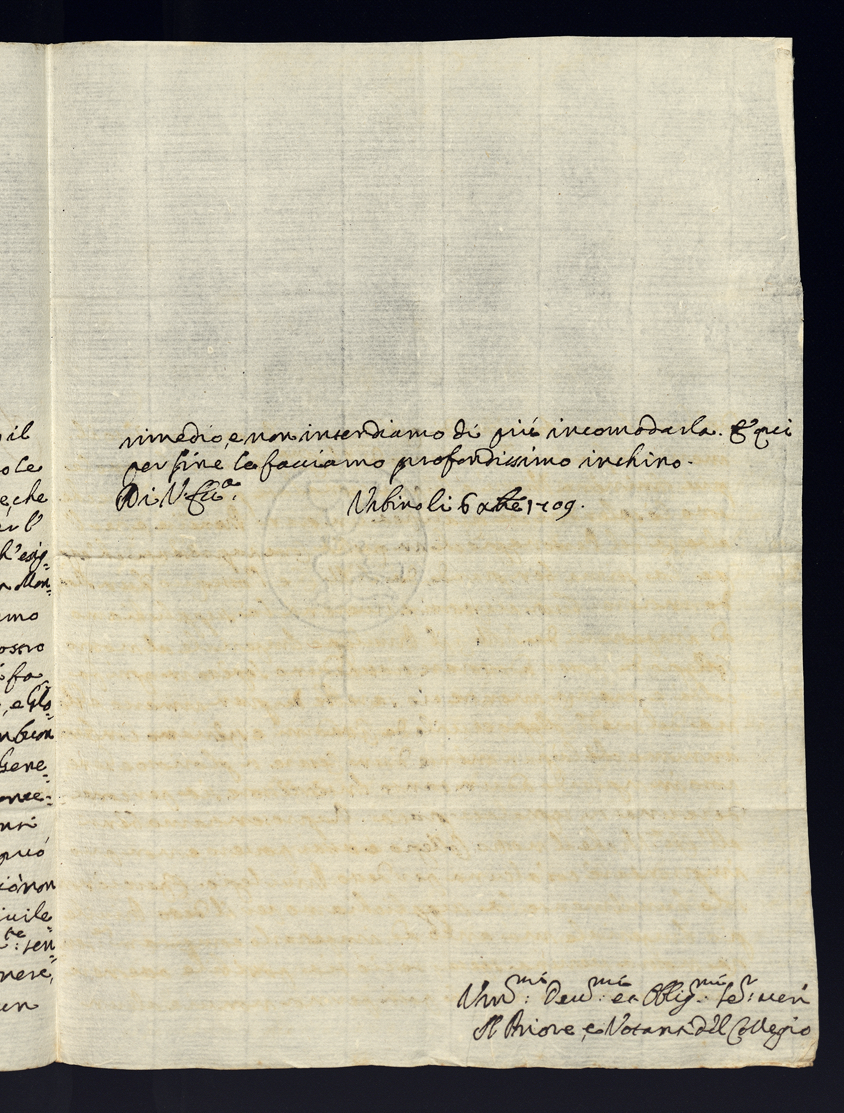 il
ole
e, che
er l'
d'esig=
n Mon=
amo
ostro
i fa=
, e Glo=
nbien
Gene=
onte=
nti
può
ciò non
ivile
te: ten
nere,
un
rimedio, e non intendiamo di più incomodarla. E quì
per fine le facciamo profondissimo inchino.
Di V. Ecc.a Urbino li 6 xbre 1709.
Um.mi: Deu.mi: et Oblig.mi: Se.r: veri
Il Priore, e Notari del Collegio